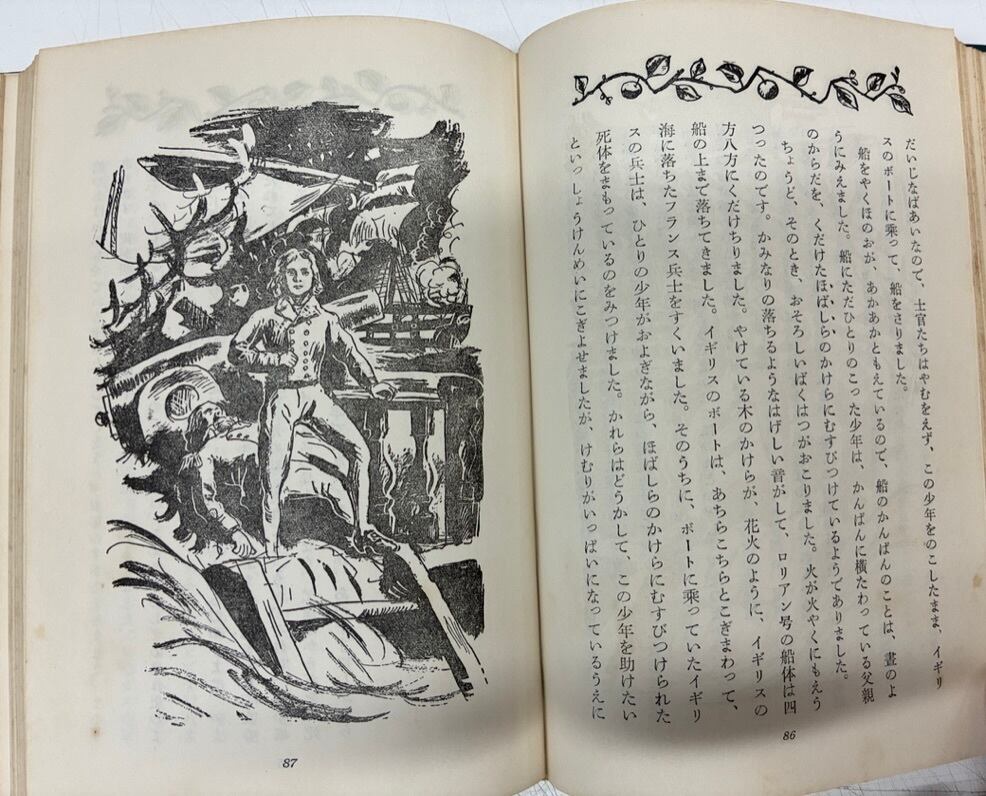 だいじなばあいなので、士官たちはやむをえず、この少年をのこしたまま、イギリ
スのボートに乗って、船をさりました。
船をやくほのおが、あかあかともえているので、船のかんばんのことは、晝のよ
うにみえました。船にただひとりのこった少年は、かんばんに横たわっている父親
のからだを、くだけたほばしらのかけらにむすびつけているようでありました。
ちょうど、そのとき、おそろしいばくはつがおこりました。火が火やくにもえう
つったのです。かみなりの落ちるようなはげしい音がして、ロリアン号の船体は四
方八方にくだけちりました。やけている木のかけらが、花火のように、イギリスの
船の上まで落ちてきました。イギリスのボートは、あちらこちらとこぎまわって、
海に落ちたフランス兵士をすくいました。そのうちに、ボートに乗っていたイギリ
スの兵士は、ひとりの少年がおよぎながら、ほばしらのかけらにむすびつけられた
死体をまもっているのをみつけました。かれらはどうかして、この少年を助けたい
といっしょうけんめいにこぎよせましたが、けむりがいっぱいになっているうえに
86
87